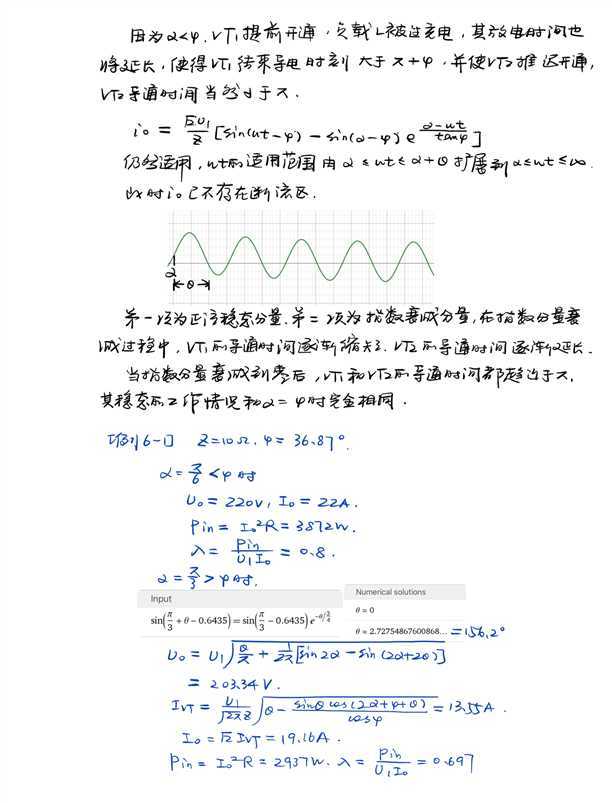 因为α<φ, VT₁提前开通, 负载L被过充电, 其放电时间也
将延长, 使得VT₁结束导电时刻大于π+φ, 并使VT₂推迟开通,
VT₂导通时间当然小于π.
i₀ = √2U₁/Z [sin(ωt-φ) - sin(α-φ) e^((α-ωt)/tanφ)]
仍然适用, ωt的适用范围由 α ≤ ωt ≤ α+θ 扩展到 α≤ωt≤∞.
此时i₀已不存在断流区.
α
|←θ→|
第一项为正弦稳态分量, 第二项为指数衰减分量, 在指数分量衰
减过程中, VT₁的导通时间逐渐缩短, VT₂的导通时间逐渐延长.
当指数分量衰减到零后, VT₁和VT₂的导通时间都趋近于π,
其稳态的工作情况和α=φ时完全相同.
[例6-1] Z=10Ω, φ=36.87°.
α=π/6<φ时
U₀=220V, I₀=22A.
Pin = I₀²R = 3872W.
λ = Pin/(U₁I₀) = 0.8.
α=π/3>φ时.
Input
sin(π/3 + θ - 0.6435) = sin(π/3 - 0.6435) e^(-θ/(3/4))
Numerical solutions
θ = 0
θ = 2.72754867600868... =156.2°
U₀ = U₁√(θ/π + 1/2π [sin2α - sin(2α+2θ)])
= 203.34V.
I_VT = U₁/(√2π Z) √(θ - sinθcos(2α+φ+θ)/cosφ) = 13.55A.
I₀ = √2 I_VT = 19.16A.
Pin = I₀²R = 2937W. λ = Pin/(U₁I₀) = 0.697